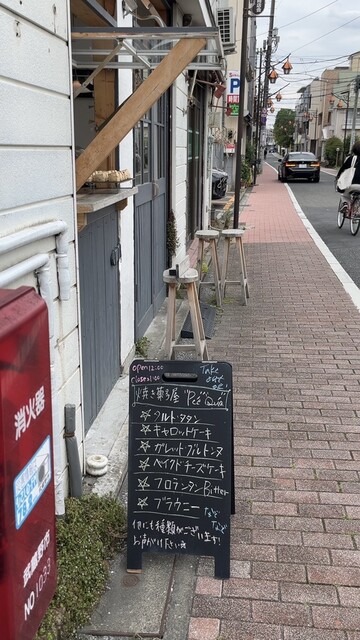 P
open 12:00
close
Take
out
ok!
焼き菓子屋
タルトタタン
キャロットケーキ
ガレットブルトンヌ
ベイクドチーズケーキ
フロランタン Butter
ブラウニー
など
他にも種類がございます!
お声がけください
消火器
NO 1033